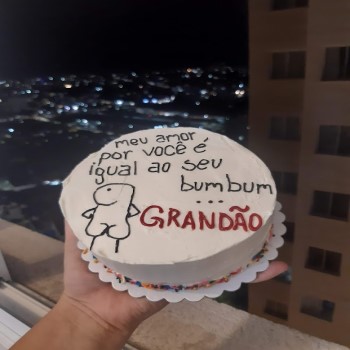 meu amor
por você é
igual ao seu
bumbum
...
GRANDÃO